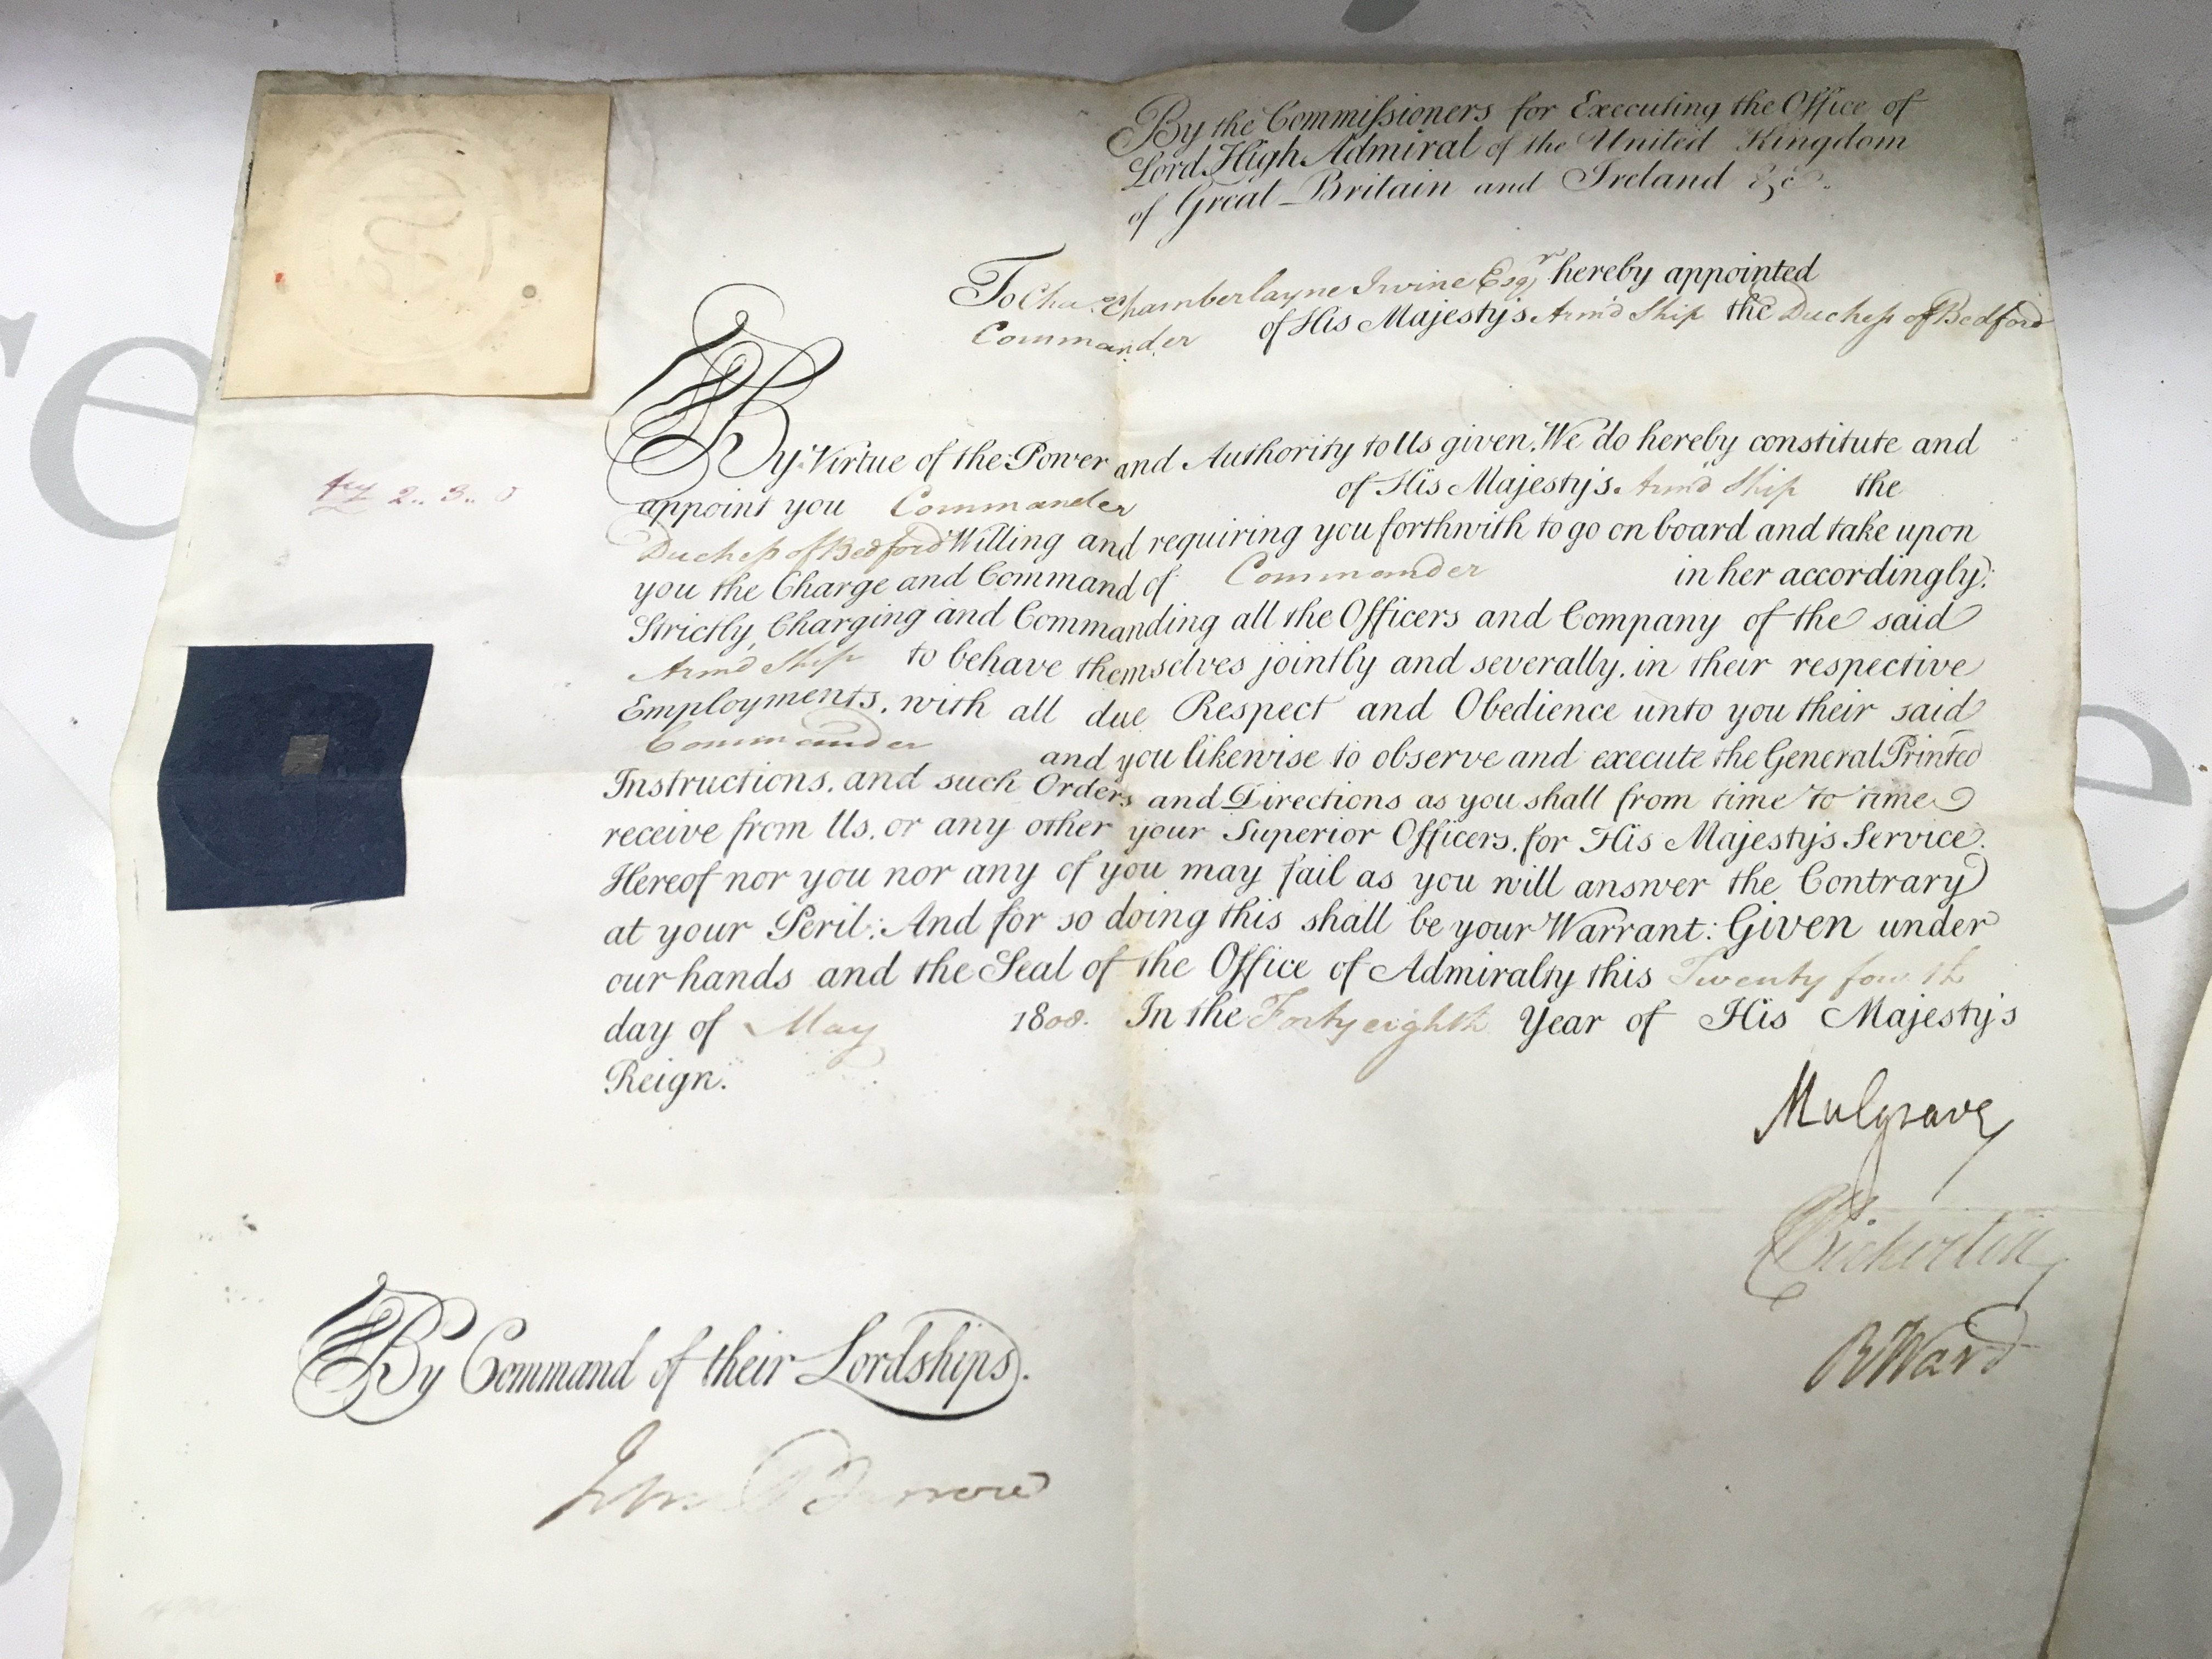 By the Commiſsioners for Executing the Office of
Lord High Admiral of the United Kingdom
of Great-Britain and Ireland &c.
To Cha.s Chamberlayne Irwine Esqr hereby appointed
Commander of His Majesty's Arm'd Ship the Ducheſs of Bedford
By Virtue of the Power and Authority to Us given. We do hereby constitute and
appoint you Commander of His Majesty's Arm'd Ship the
Ducheſs of Bedford Willing and requiring you forthwith to go on board and take upon
you the Charge and Command of Commander in her accordingly.
Strictly Charging and Commanding all the Officers and Company of the said
Arm'd Ship to behave themselves jointly and severally, in their respective
Employments, with all due Respect and Obedience unto you their said
Commander and you likewise to observe and execute the General Printed
Instructions, and such Orders and Directions as you shall from time to time
receive from Us, or any other your Superior Officers, for His Majesty's Service.
Hereof nor you nor any of you may fail as you will answer the Contrary
at your Peril: And for so doing this shall be your Warrant: Given under
our hands and the Seal of the Office of Admiralty this Twenty fourth
day of May 1808. In the Forty eighth Year of His Majesty's
Reign.
2.. 3.. 0
Mulgrave
R Bickerton
R Ward
By Command of their Lordships.
John Barrow